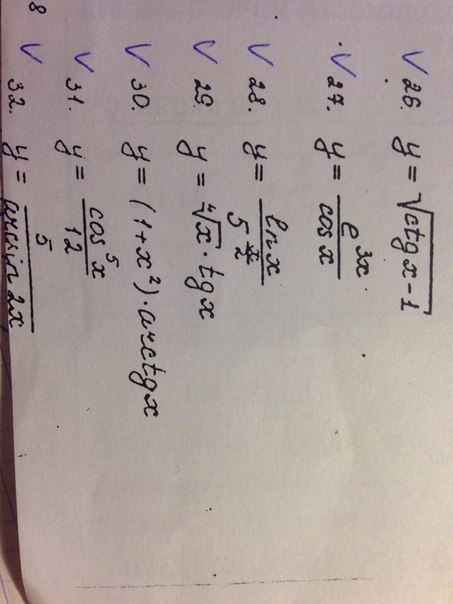 26. y = √(ctgx-1)
27. y = e^3x / cosx
28. y = lnx / 5
29. y = ⁴√x · tgx
30. y = (1+x²) · arctgx
31. y = cos⁵x / 12
32. y = 5 / arcsin2x
8